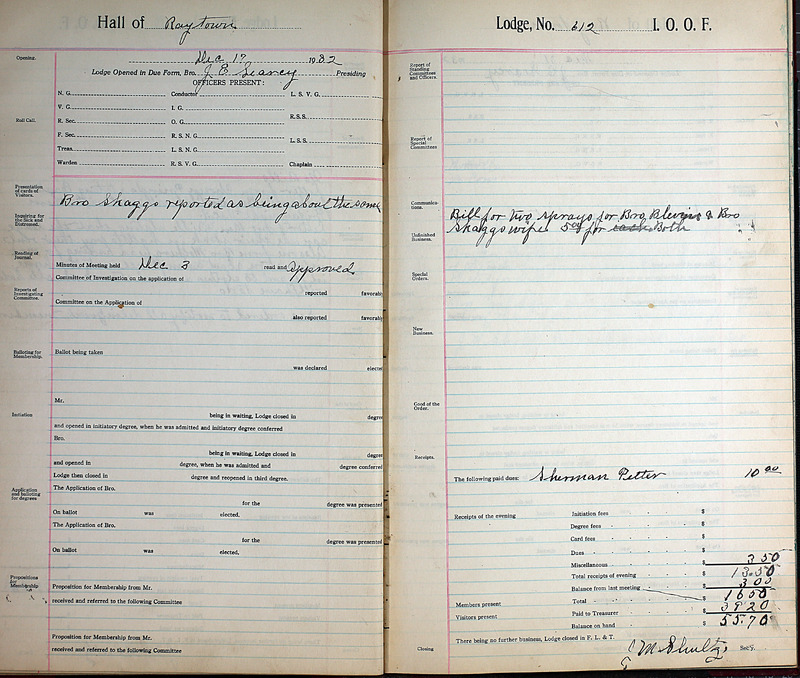 Hall of Raytown
Dec 17 1932
Opening.
Lodge Opened in Due Form, Bro. J. E. Searcy Presiding
OFFICERS PRESENT:
N. G. Conductor L. S. V. G.
V. G. I. G.
R. S. S.
Roll Call.
R. Sec. O. G.
F. Sec. R. S. N. G.
L. S. S.
Treas. L. S. N. G.
Warden R. S. V. G. Chaplain
Presentation of cards of Visitors.
Bro Skaggs reported as being about the same
Inquiring for the Sick and Distressed.
Reading of Journal.
Minutes of Meeting held Dec 3 read and approved
Committee of Investigation on the application of
Reports of Investigating Committee.
reported favorab
Committee on the Application of
also reported favorab
Balloting for Membership.
Ballot being taken
was declared electe
Mr.
Initiation
being in waiting, Lodge closed in degre
and opened in initiatory degree, when he was admitted and initiatory degree conferred
Bro.
being in waiting, Lodge closed in degre
and opened in degree, when he was admitted and degree conferred
Lodge then closed in degree and reopened in third degree.
Application and balloting for degrees
The Application of Bro.
for the degree was presented
On ballot was elected.
The Application of Bro.
for the degree was presented
On ballot was elected.
Propositions for Membership
Proposition for Membership from Mr.
received and referred to the following Committee
Proposition for Membership from Mr.
received and referred to the following Committee
Lodge, No. 612 I. O. O. F.
Report of Standing Committees and Officers.
Report of Special Committees
Communications.
Bill for two sprays for Bro. Blevins & Bro
Unfinished Business.
Skaggs wife 5.00 for each Both
Special Orders.
New Business.
Good of the Order.
Receipts.
The following paid dues: Sherman Petter 10 00
Receipts of the evening Initiation fees $
Degree fees $
Card fees $
Dues $
Miscellaneous $ 3 50
Total receipts of evening $ 13.50
Balance from last meeting $ 3 00
Members present Total $ 16 50
Visitors present Paid to Treasurer $ 39 20
Balance on hand $ 55.70
There being no further business, Lodge closed in F. L. & T.
Closing
J M Shultz Sec'y.